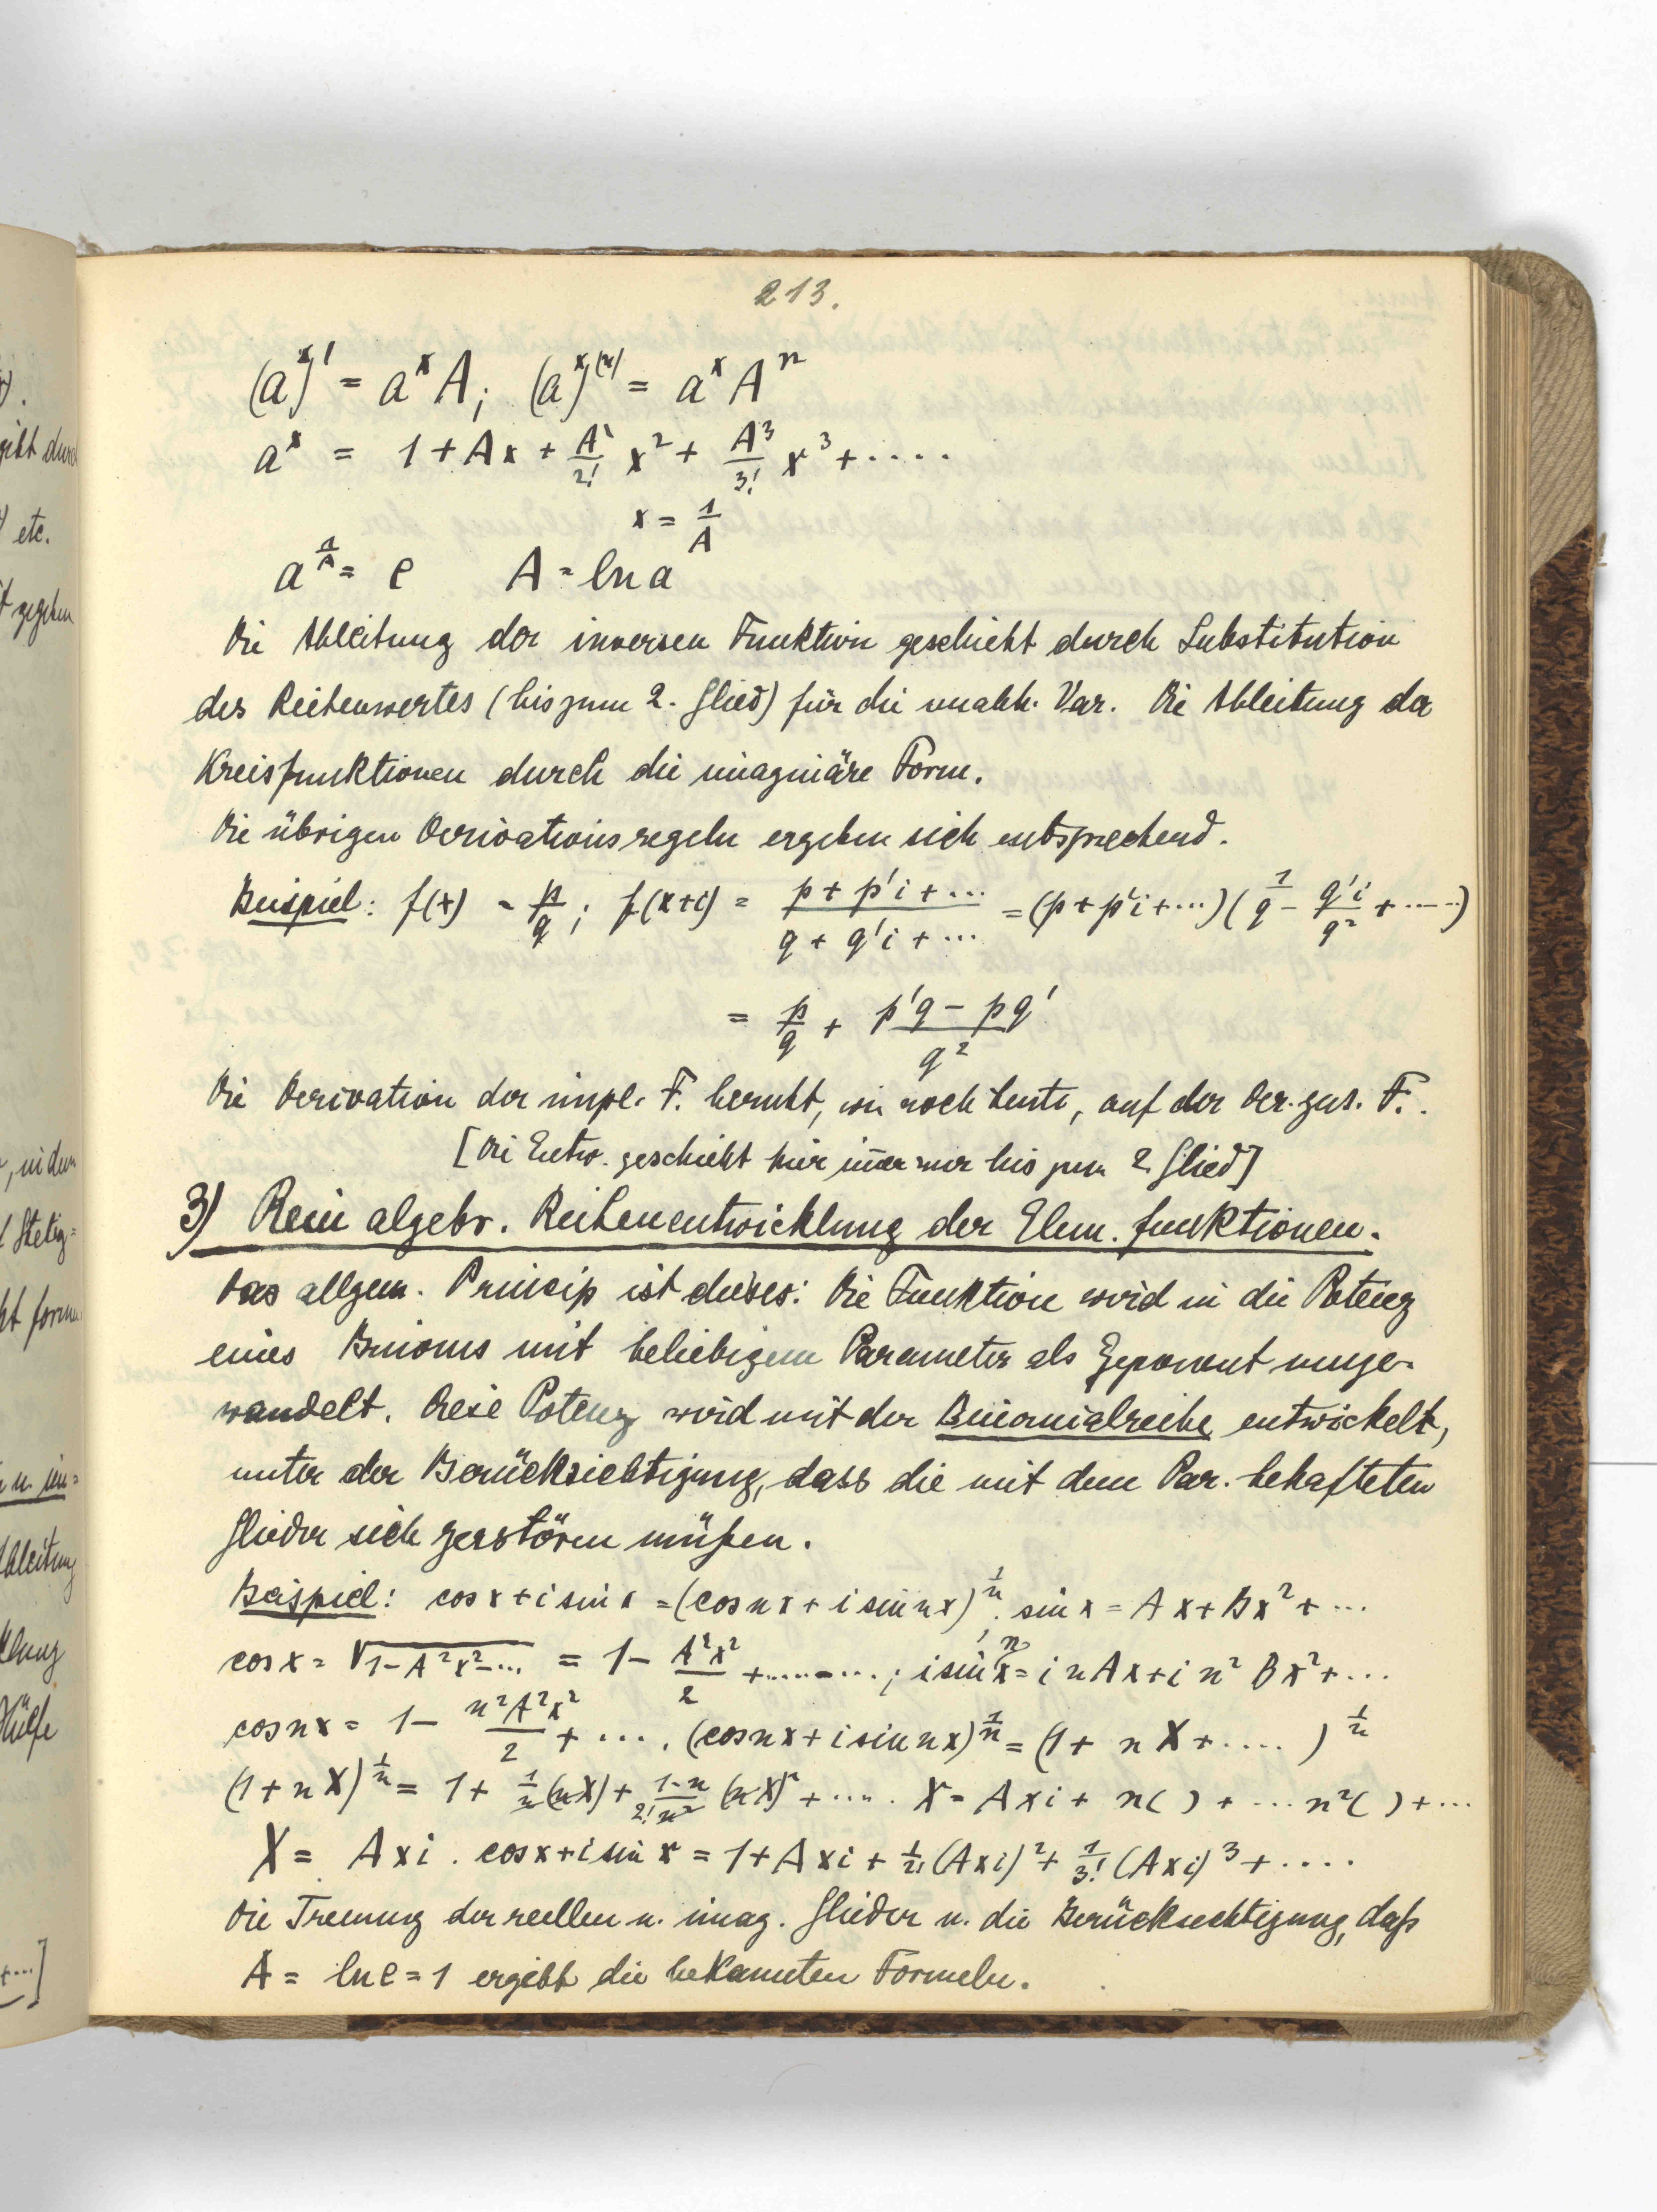 213.
(aˣ)' = aˣ A; (aˣ)⁽ⁿ⁾ = aˣ Aⁿ
aˣ = 1 + Ax + A²/2! x² + A³/3! x³ + .....
x = 1/A
a^(1/A) = e A = ln a
Die Ableitung der inversen Funktion geschieht durch Substitution
des Reihenwertes (bis zum 2. Glied) für die unabh. Var. Die Ableitung der
Kreisfunktionen durch die imaginäre Form.
Die übrigen Derivationsregeln ergeben sich entsprechend.
Beispiel: f(x) = p/q; f(x+i) = (p + p'i + ...)/(q + q'i + ...) = (p + p'i + ...)(1/q - q'i/q² + .....)
= p/q + (p'q - pq')/q²
Die Derivation der impl. F. beruht, wie noch heute, auf der Der. zus. F..
[Die Entw. geschieht hier im̄er nur bis zum 2. Glied]
3) Rein algebr. Reihenentwicklung der Elem. funktionen.
Das allgem. Princip ist dieses: Die Funktion wird in die Potenz
eines Binoms mit beliebigem Parameter als Exponent umge-
wandelt. Diese Potenz wird mit der Binomialreihe entwickelt,
unter der Berücksichtigung, dass die mit dem Par. behafteten
Glieder sich zerstören müßen.
Beispiel: cos x + i sin x = (cos nx + i sin nx)^(1/n); sin x = Ax + Bx² + ...
cos x = √(1 - A²x² - ...) = 1 - A²x²/2 + ........; i sin nx = i n Ax + i n² Bx² + ...
cos nx = 1 - n²A²x²/2 + .... (cos nx + i sin nx)^(1/n) = (1 + n X + ....)^(1/n)
(1 + nX)^(1/n) = 1 + 1/n (nX) + (1-n)/(2! n²) (nX)² + ..... X = Axi + n( ) + ... n²( ) + ...
X = Axi. cos x + i sin x = 1 + Axi + 1/2! (Axi)² + 1/3! (Axi)³ + ....
Die Trennung der reellen u. imag. Glieder u. die Berücksichtigung, daß
A = ln e = 1 ergibt die bekannten Formeln.